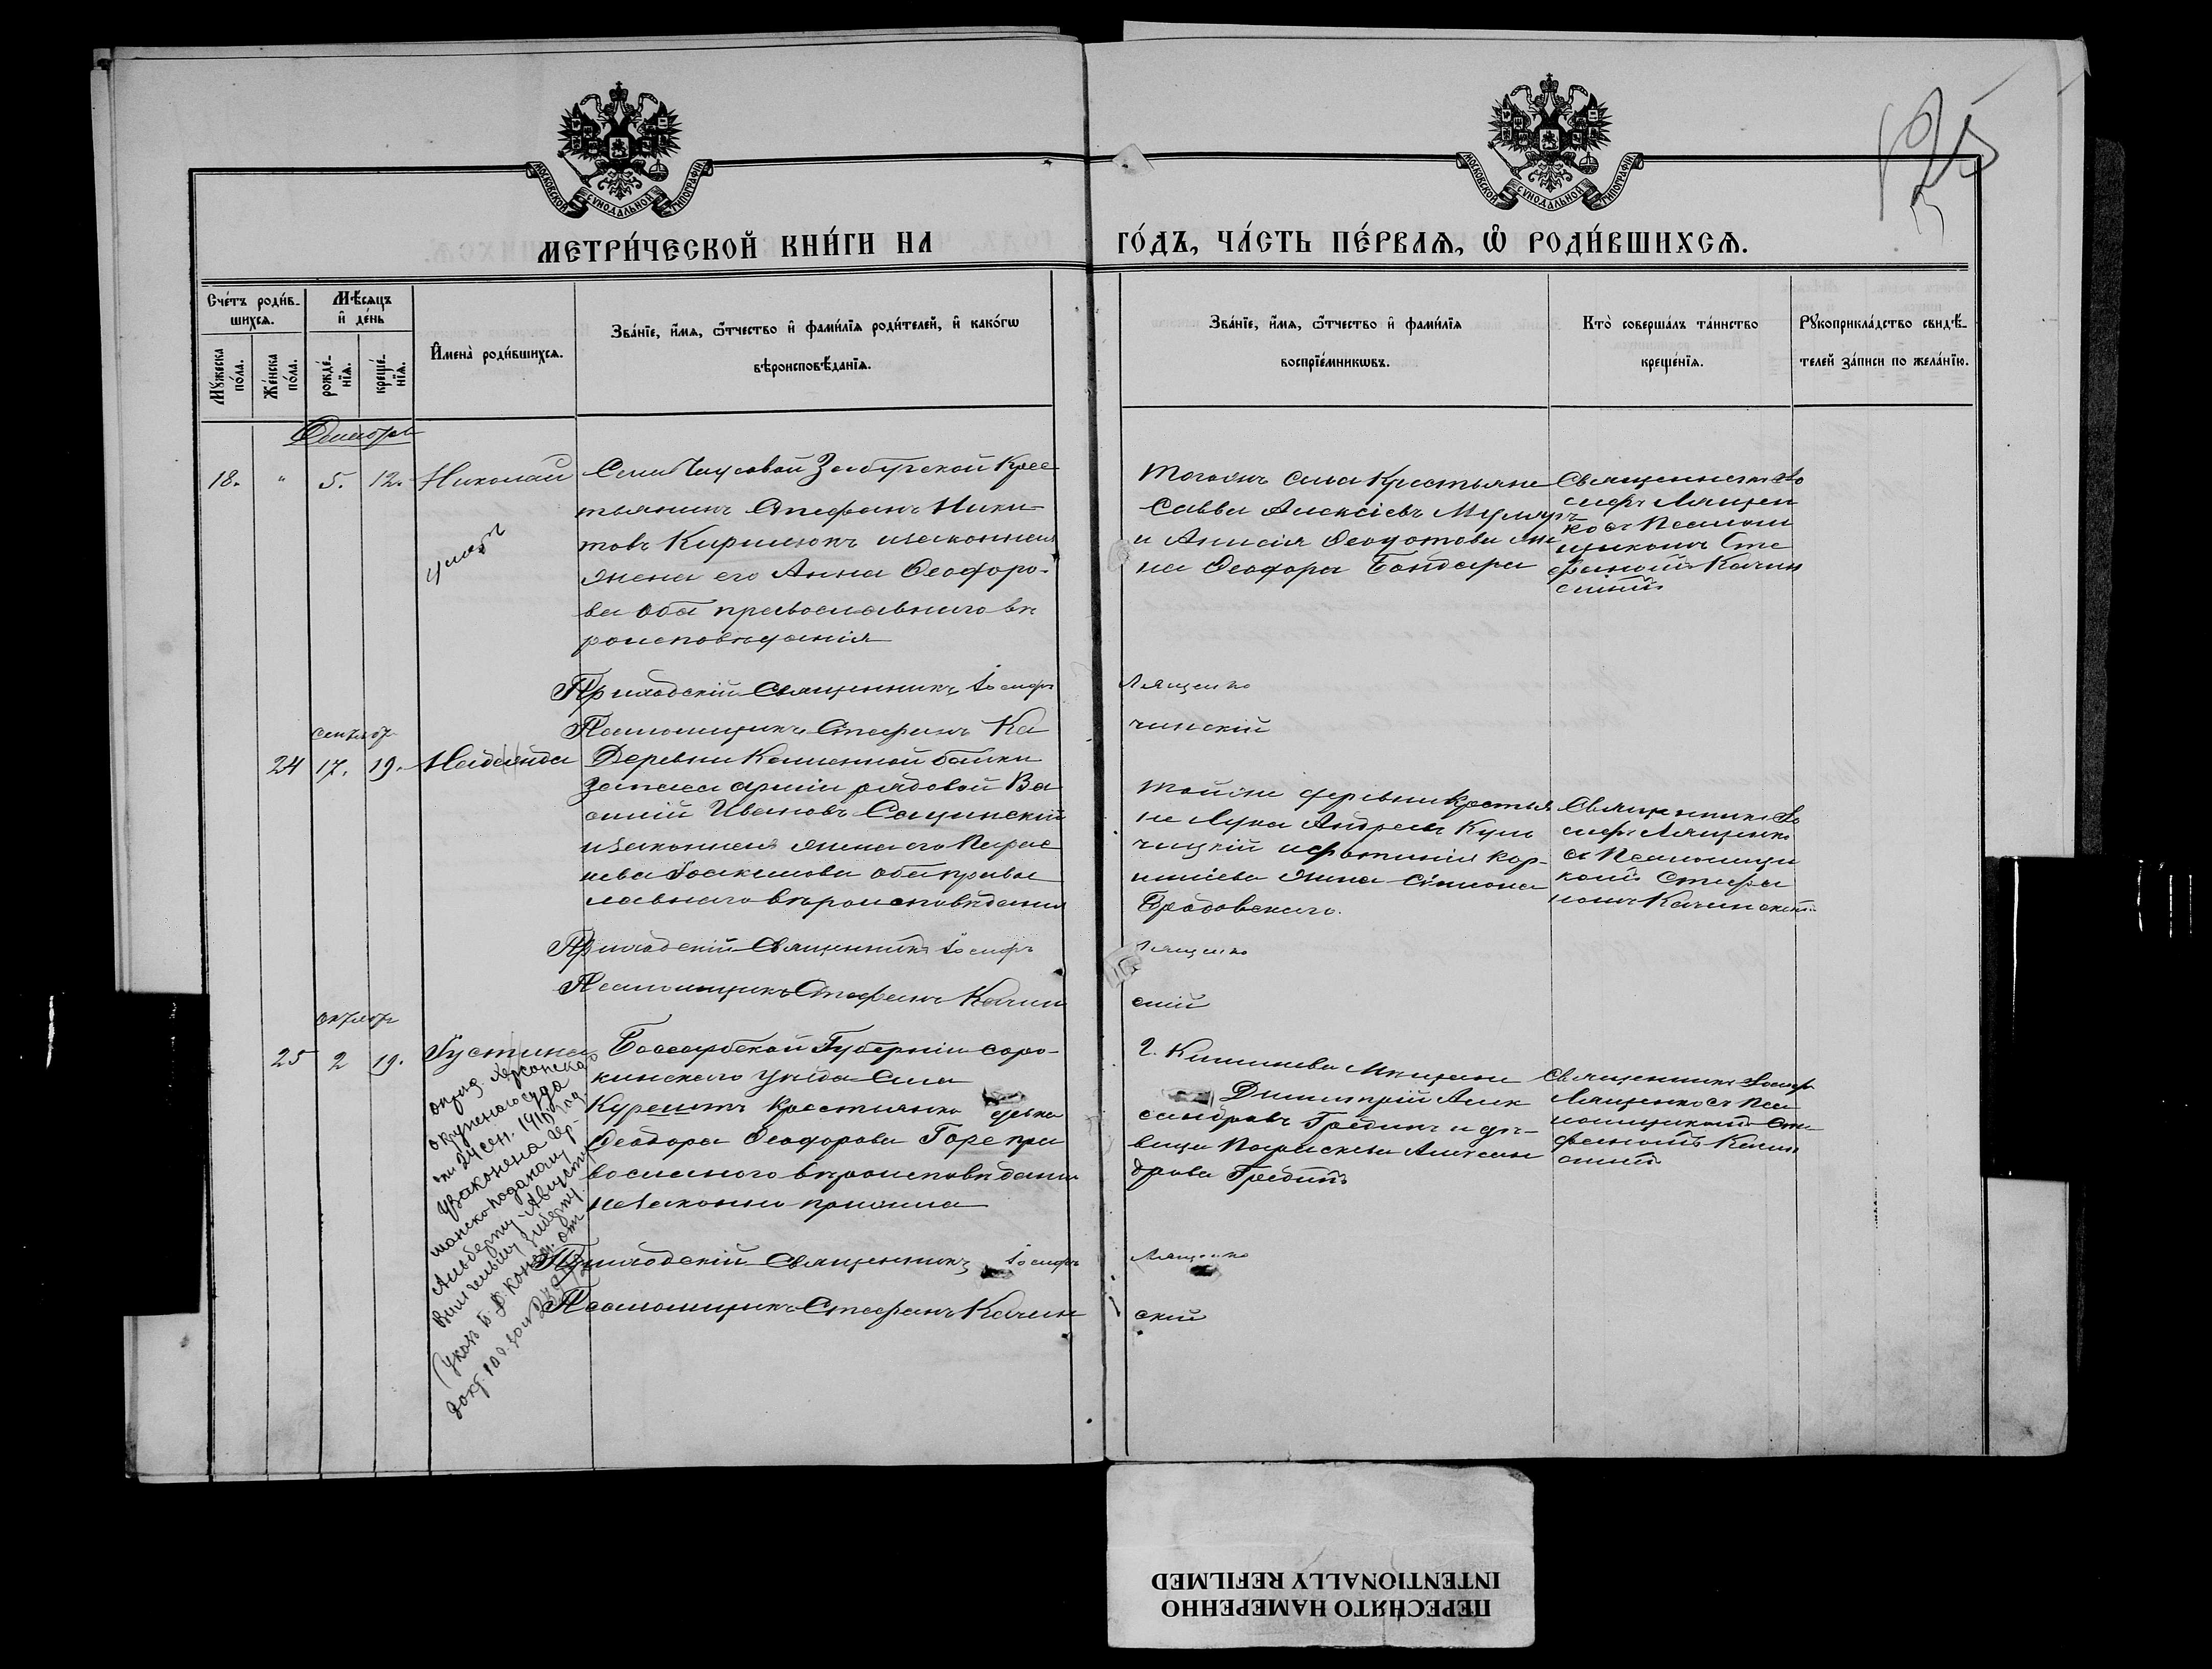 125
МОСКОВСКОЙ СѴНОДАЛЬНОЙ ТИПОГРАФІИ
МОСКОВСКОЙ СѴНОДАЛЬНОЙ ТИПОГРАФІИ
МЕТРИ́ЧЕСКОЙ КНИ́ГИ НА
ГО́ДЪ, ЧА́СТЬ ПЕ́РВАѦ, Ѽ РОДИ́ВШИХСѦ.
Сче́тъ роди́в-
шихсѧ.
Мꙋ́жеска
по́ла.
Же́нска
по́ла.
Мѣ́сѧцъ
и҆ де́нь
рожде́-
нїѧ.
креще́-
нїѧ.
И҆мена̀ роди́вшихсѧ.
Зва́нїе, и҆́мѧ, ѻ҆́тчество и҆ фами́лїѧ роди́телей, и҆ како́гѡ
вѣроисповѣ́данїѧ.
Зва́нїе, и҆́мѧ, ѻ҆́тчество и҆ фами́лїѧ
воспрїе́мникѡвъ.
Кто̀ соверша́лъ та́инство
креще́нїѧ.
Рꙋкоприкла́дство свидѣ́-
телей за́писи по жела́нїю.
18. " 5. 12. Николай
умеръ
Села Чаусовой Забугской Крес
тьянинъ Стефанъ Ники-
товъ Кирилюкъ и законная
жена его Анна Ѳеодоро-
ва оба православнаго вѣ
роисповѣданія
Тогожъ села Крестьяне
Савва Алексіевъ Муляръ
и Анисія Ѳеодотова же
на Ѳеодора Бондаря
Священникъ Іо
сифъ Лященко
съ Псаломщикомъ Сте
фаномъ Качин
скимъ
Приходскій Священникъ Іосифъ Лященко
Псаломщикъ Стефанъ Качинскій
сентябрь
24 17. 19. Надежда
Деревни Каменной балки
запаса арміи рядовой Ва
силій Ивановъ Сацинскій
и законная жена его Парас
кева Іоакимова оба право
славнаго вѣроисповѣданія
Той же деревни Крестья
не Лука Андреевъ Куль
чицкій и Фотинія Кор-
жена Симеона
Бродовскаго.
Священникъ Іо
сифъ Лященко
съ Псаломщи
комъ Стефа
номъ Качинскимъ
Приходскій Священникъ Іосифъ Лященко
Псаломщикъ Стефанъ Качинскій
октябрь
25 2 19. Іустина
опред. Херсонскаго
окружнаго суда
отъ 24 сен. 1910 год
узаконена гер-
манскоподаному
Альберту-Августу
(указъ Х. Д. Конс. отъ
Бессарабской Губерніи Соро-
кинскаго уѣзда Села
Курешъ крестьянка дѣвка
Ѳеодора Ѳеодорова Горе пра
вославнаго вѣроисповѣданія
незаконно прижила
г. Кишинева Мѣщане
Димитрій Алек
сандровъ Гредин и дѣ-
вица Параскева Алексан
дрова Гредин
Священникъ Іосифъ
Лященко съ Пса
ломщикомъ Сте
фаномъ Качин
скимъ
Приходскій Священникъ Іосифъ Лященко
Псаломщикъ Стефанъ Качинскій
ПЕРЕСНЯТО НАМЕРЕННО
INTENTIONALLY REFILMED